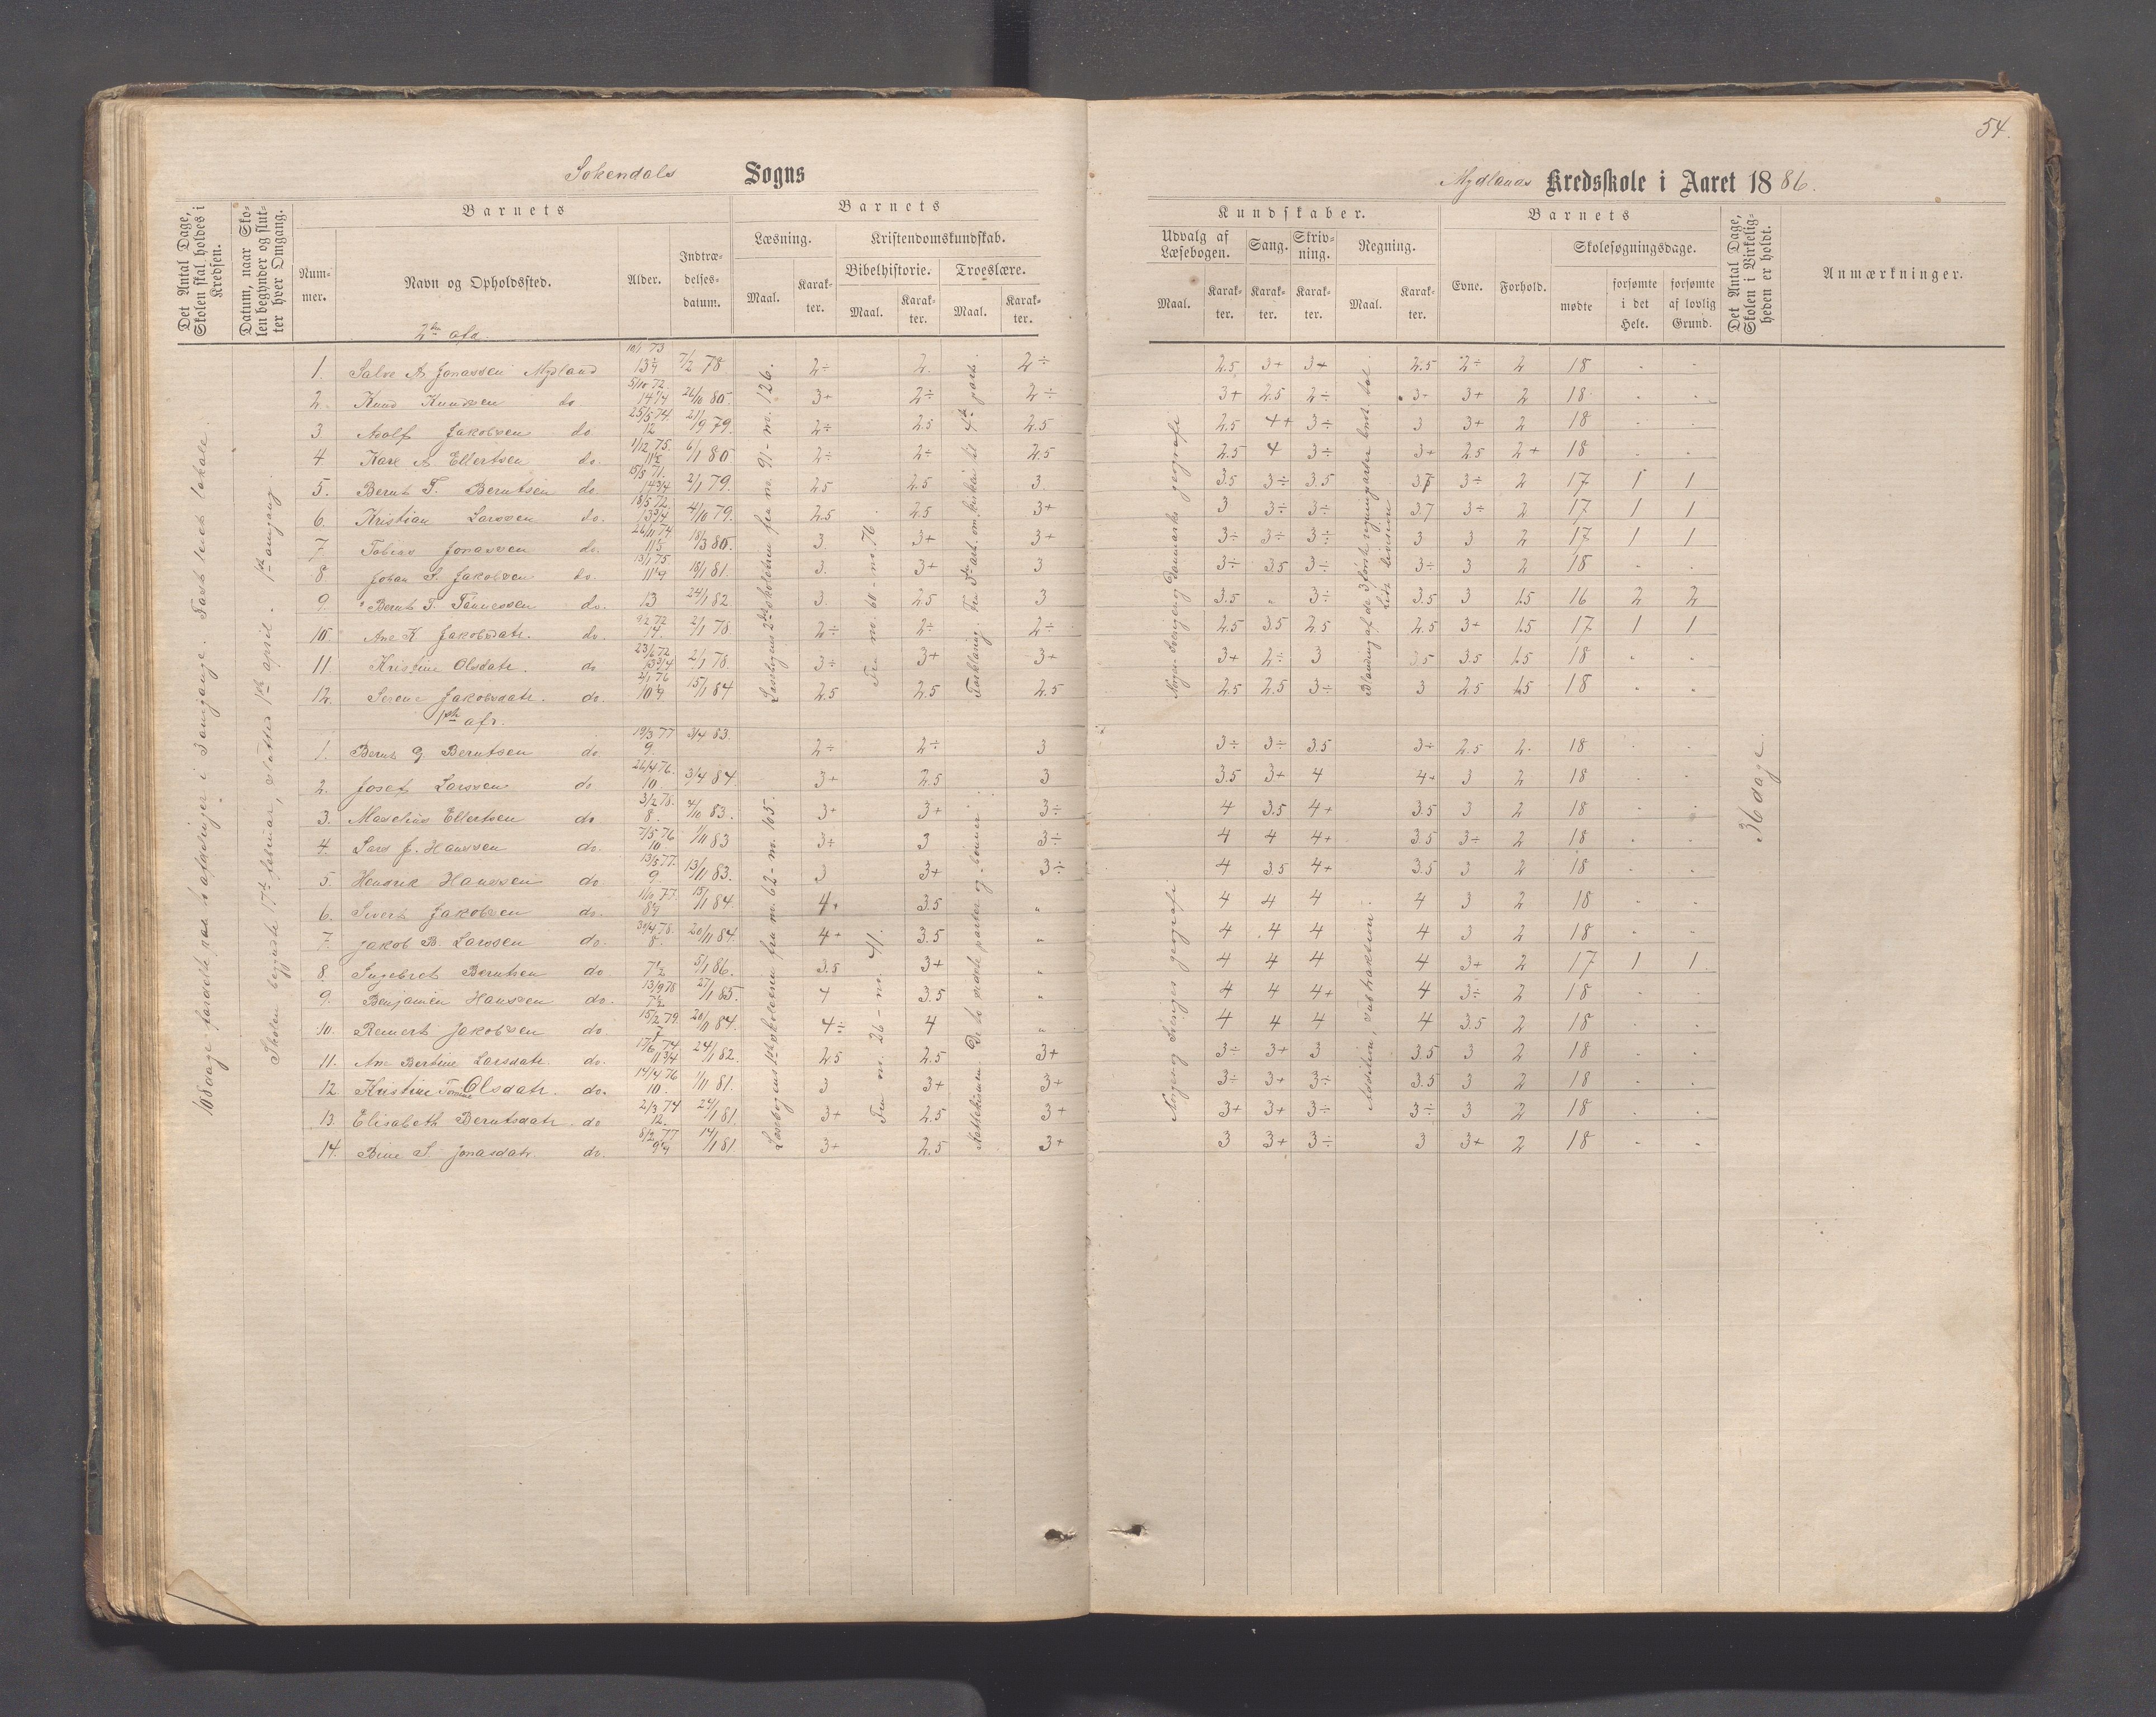 54.
Sokendals Sogns
Mydlands Kredsskole i Aaret 1886.
Det Antal Dage, Skolen skal holdes i Kredsen.
Datum, naar Skolen begynder og slutter hver Omgang.
Barnets
Nummer.
Navn og Opholdssted.
Alder.
Indtrædelsesdatum.
Barnets
Læsning.
Maal.
Karakter.
Kristendomskundskab.
Bibelhistorie.
Maal.
Karakter.
Troeslære.
Maal.
Karakter.
Kundskaber.
Udvalg af Læsebogen.
Maal.
Karakter.
Sang.
Karakter.
Skrivning.
Karakter.
Regning.
Maal.
Karakter.
Barnets
Evne.
Forhold.
Skolesøgningsdage.
mødte
forsømte i det Hele.
forsømte af lovlig Grund.
Det Antal Dage, Skolen i Virkeligheden er holdt.
Anmærkninger.
108 dage fordelte paa 2 afdelinger i 3 omgange. Fast leiet lokale.
Skolen begyndte 17de februar, sluttet 1ste april. 1ste omgang.
2den afd.
1. Salve A Jonassen Mydland 10/1 73 13 1/4 7/2 78 2÷ 2. 2÷ 2.5 3+ 3+ 2.5 2÷ 2 18 - -
2. Knud Knudsen do 5/10 72. 14 1/4 26/10 80. 3+ 2÷ 2÷ 3+ 2.5 2÷ 3÷ 3+ 2 18 - -
3 Adolf Jakobsen do. 25/5 74 12 21/9 79. 2÷ 2.5 2.5 2.5 4+ 3÷ 3 3+ 2 18 - -
4 Karl A Ellertsen do. 1/12 75. 11 1/2 6/1 80 2÷ 2÷ 2.5 2.5 4 3÷ 3+ 2.5 2+ 18 - -
5. Bernt T. Berntsen do. 15/5 71. 14 3/4 2/1 79. 2.5 2.5 3 3.5 3÷ 3.5 3.5 3÷ 2 17 1 1
6. Kristian Larssen do. 18/5 72. 13 3/4 4/10 79. 2.5 2.5 3+ 3 3÷ 3÷ 3.7 3÷ 2 17 1 1
7. Tobias Jonassen do. 26/11 74 11 1/2 18/3 80. 3 3+ 3+ 3÷ 3÷ 3÷ 3 3 2 17 1 1
8 Johan S. Jakobsen do. 13/1 75 11 1/4 18/1 81. 3. 3+ 3 3÷ 3.5 3÷ 3÷ 3 2 18 - -
9. Bernt T. Tønnessen do. 13 24/1 82. 3. 2.5 3 3.5 " 3÷ 3.5 3 1.5 16 2 2
10 Ane K Jakobsdatr. do. 9/2 72 14. 2/1 78. 2÷ 2÷ 2÷ 2.5 3.5 2.5 2.5 3+ 1.5 17 1 1
11 Kristine Olsdatr. do 23/6 72 13 3/4 2/1 78. 3÷ 3+ 3+ 3+ 2÷ 3 3.5 3.5 1.5 18 - -
12. Serene Jakobsdatr. do. 2/1 76 10 1/4 15/1 84 2.5 2.5 2.5 2.5 2.5 3÷ 3 2.5 1.5 18 - -
Læsebogens 2det skoletrin fra nr. 91 - nr. 126.
Fra nr. 60 - nr. 76.
Forklaring. Fra 3die art. om kirken til 4de part.
Norges Sveriges og Danmarks geografi
Blanding af de 3 første regningsarter bnt. tal. Lidt division
1ste afd.
1. Bernt G. Berntsen do 19/3 77 9. 3/4 83. 2÷ 2÷ 3 3÷ 3÷ 3.5 3÷ 2.5 2. 18 - -
2. Josef Larssen do 26/4 76. 10. 3/4 84. 3+ 2.5 3 3.5 3+ 4 4+ 3 2 18 - -
3. Maselius Ellertsen do 3/2 78. 8. 4/10 83. 3+ 3+ 3÷ 4 3.5 4+ 3.5 3 2 18 - -
4. Lars J. Hanssen do. 7/5 76 10. 1/11 83 3÷ 3 3÷ 4 4 4+ 3.5 3÷ 2 18 - -
5. Hendrik Hanssen do 13/5 77. 9 13/11 83. 3 3+ 3÷ 4 3.5 4+ 3.5 3 2 18 - -
6. Sivert Jakobsen do. 1/10 77. 8 1/4 15/1 84. 4+ 3.5 " 4 4 4 4 3 2 18 - -
7. Jakob B. Larssen do. 30/4 78. 8. 20/11 84. 4+ 3.5 " 4 4 4 4 3 2 18 - -
8. Ingebret Berntsen do. 7 1/2 5/1 86. 3.5 3+ " 4 4 4 4 3+ 2 17 1 1
9. Benjamin Hanssen do. 13/9 78 7 1/2 27/1 85. 4 3.5 " 4 4 4+ 4 3÷ 2 18 - -
10. Reinert Jakobsen do. 15/2 79. 7 20/11 84. 4÷ 4 " 4 4 4 4 3.5 2 18 - -
11. Ane Bertine Larsdatr. do. 17/6 74 11 3/4 24/1 82. 2.5 2.5 3+ 3÷ 3+ 3 3.5 3 2 18 - -
12. Kristine Tomine Olsdatr. do. 14/4 76 10. 1/11 81. 3 3+ 3+ 3÷ 3+ 3÷ 3.5 3 2 18 - -
13. Elisabeth Berntsdatr. do 2/3 74 12. 24/1 81. 3+ 2.5 3+ 3+ 3+ 3÷ 3÷ 3 2 18 - -
14. Bine S. Jonasdatr. do. 8/2 77 9 1/4 14/1 81. 3+ 2.5 3+ 3 3+ 3÷ 3 3+ 2 18 - -
Læsebogens 1ste skoletrin fra nr. 62 - nr. 105.
Fra nr. 26 - nr. 41.
De to sidste parter og bønner.
Norges og Sveriges geografi
Addition, subtraktion.
36 dage.